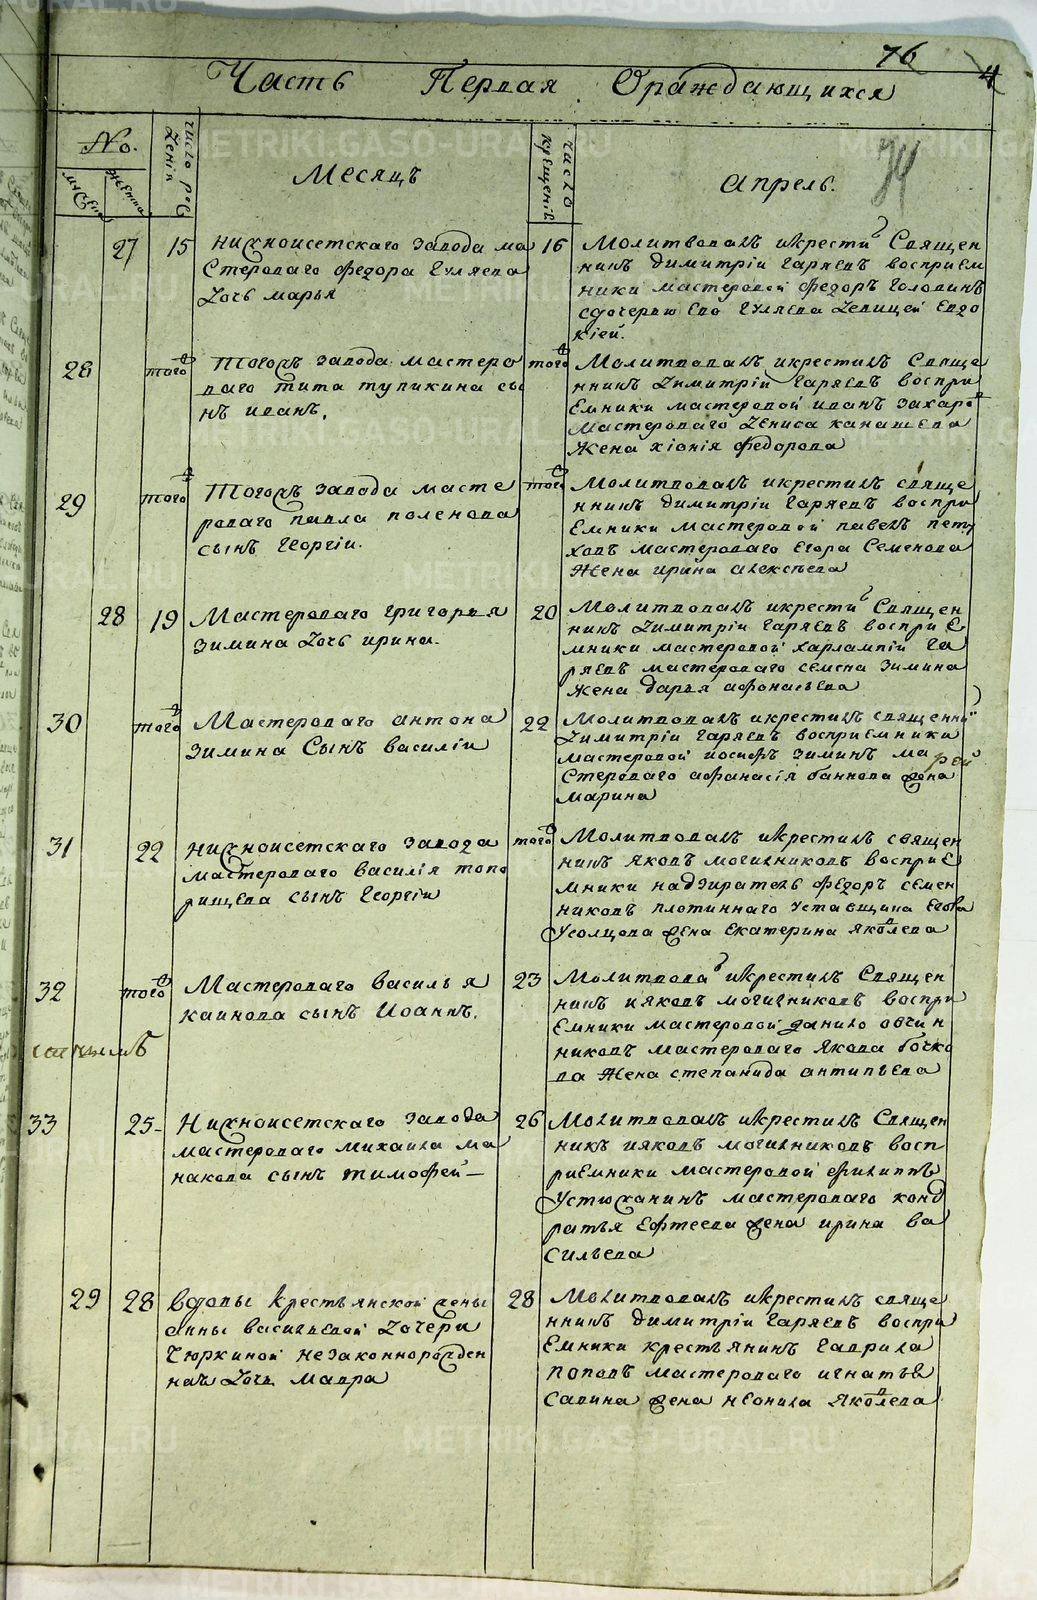 76
4
Часть Первая Ораждающихся
74
No.
мужеска
женска
число рож
дения
Месяцъ
число
крещенiя
Апрель.
27 15 нижноисетскаго завода ма
стероваго федора Гуляева
дочь марья
16 Молитвовалъ икрестилъ Священ
никъ димитрiи Гаряевъ восприем
ники мастеровой федоръ Головинъ
сдочерью Ево Гуляева девицей Евдо
кiей.
28 того Тогожъ завода мастеро
ваго тита тупикина сы
нъ иванъ.
того Молитвовалъ икрестилъ Свяще
нникъ димитрiи Гаряевъ воспри
Емники мастеровой иванъ захаро
мастероваго дениса канашева
жена хiонiя федорова
29 того Тогожъ завода масте
роваго павла поленова
сынъ Георгiи.
того Молитвовалъ икрестилъ свяще
нникъ димитрiи Гаряевъ воспри
Емники мастеровой павелъ пету
ховъ мастероваго Егора Семенова
жена ирина алексеева
28 19 Мастероваго григорья
зимина дочь ирина.
20 Молитвовалъ икрестилъ Священ
никъ димитрiи Гаряевъ восприе
мники мастеровой харлампiй Га
ряевъ мастероваго семена зимина
жена дарья афонасьева
30 того Мастероваго антона
зимина Сынъ василiи
22 Молитвовалъ икрестилъ священни
димитрiи Гаряевъ восприемники
мастеровой иосифъ зиминъ ма
стероваго афанасiя баннова жена
марина
31 22 нижноисетскаго завода
мастероваго василiя топо
рищева сынъ Георгiи
того Молитвовалъ икрестилъ священ
никъ яковъ могильниковъ восприе
мники надзиратель федоръ семен
никовъ плотиннаго уставщика Егова
Усолцова жена Екатерина яковлева
32 того Мастероваго василья
каинова сынъ Иоаннъ.
23 Молитвова икрестилъ Священ
никъияковъ могильниковъ воспри
Емники мастеровой данило овчин
никовъ мастероваго якова бочко
ва жена степанида антипьева
33 25- Нижноисетскаго завода
мастероваго михаила ма
накова сынъ тимофей—
26 Молитвовалъ икрестилъ Священ
никъ ияковъ могильниковъ восп
риемники мастеровой филиппъ
Устюжанинъ мастероваго конд
ратья Ефтеева жена ирина ва
сильева
29 28 вдовы крестьянской жены
анны васильевой дочери
Чюркиной незаконнорожден
ная дочь мавра
28 Молитвовалъ икрестилъ свяще
нникъ димитрiи Гаряевъ воспри
Емники крестьянинъ гаврила
поповъ мастероваго игнатья
савина жена неонила яковлева